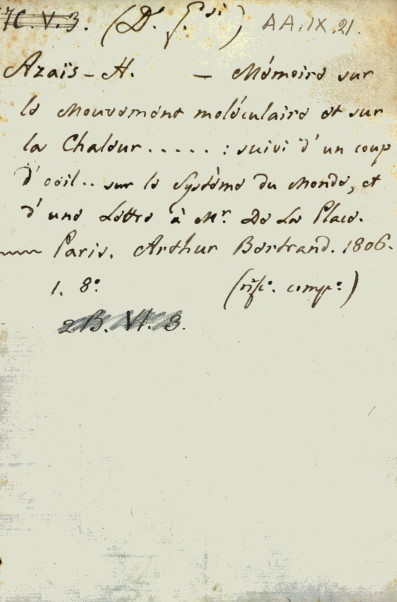 7C. V. 3. (D. G.si) AA.IX.21.
Azaïs-H. — Mémoire sur
le Mouvement moléculaire et sur
la Chaleur.....: suivi d'un coup
d'oeil.. sur le Système du Monde, et
d'une Lettre à Mr. De La Place.
Paris. Arthur Bertrand. 1806.
1. 8° (rifo. compo.)
2B. VI. 3.